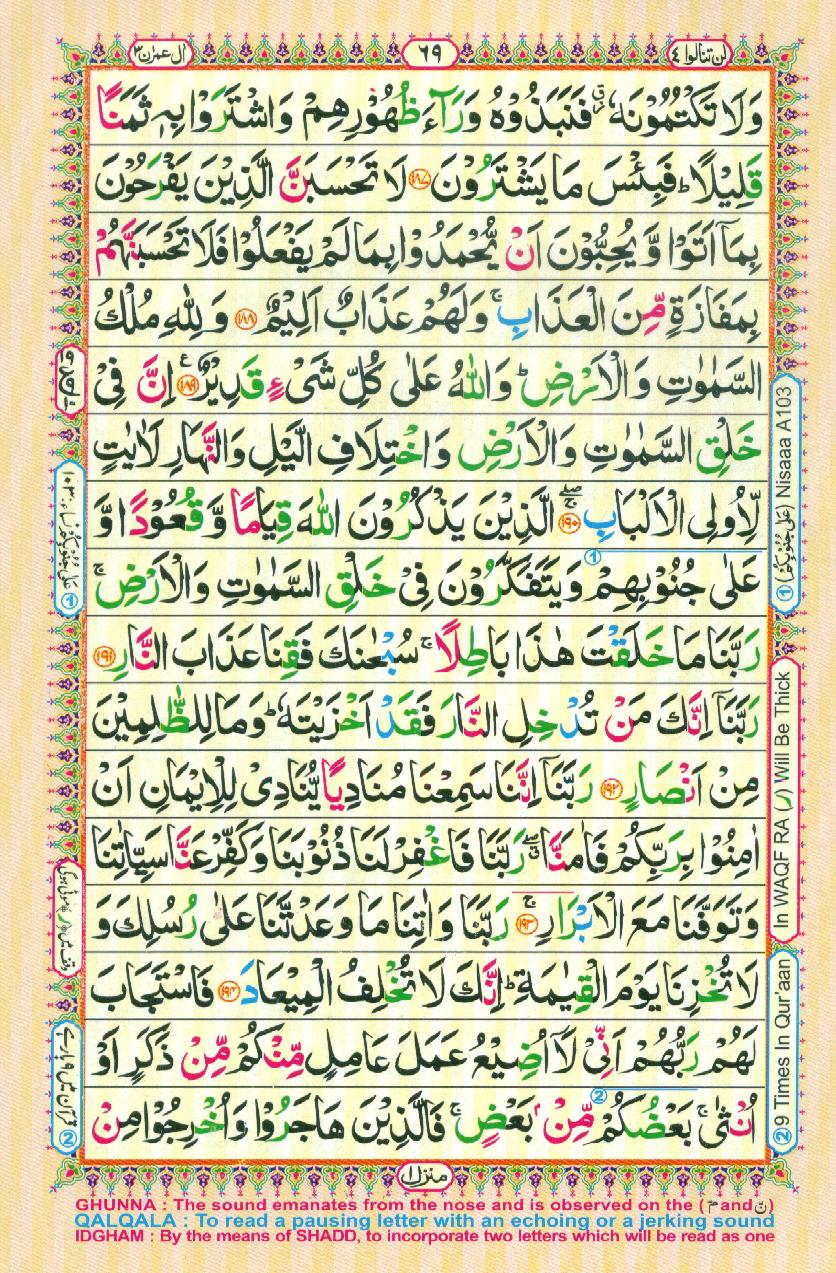 لن تنالوا ٤
٦٩
اٰل عمرٰن ٣
وَلَا تَكْتُمُوْنَهٗ ۫ فَنَبَذُوْهُ وَرَآءَ ظُهُوْرِهِمْ وَاشْتَرَوْا بِهٖ ثَمَنًا
قَلِيْلًا ؕ فَبِئْسَ مَا يَشْتَرُوْنَ ۝۱۸۷ لَا تَحْسَبَنَّ الَّذِيْنَ يَفْرَحُوْنَ
بِمَاۤ اَتَوْا وَّ يُحِبُّوْنَ اَنْ يُّحْمَدُوْا بِمَا لَمْ يَفْعَلُوْا فَلَا تَحْسَبَنَّهُمْ
بِمَفَازَةٍ مِّنَ الْعَذَابِ ۚ وَلَهُمْ عَذَابٌ اَلِيْمٌ ۝۱۸۸ وَ لِلّٰهِ مُلْكُ
السَّمٰوٰتِ وَ الْاَرْضِ ؕ وَاللّٰهُ عَلٰى كُلِّ شَیْءٍ قَدِيْرٌ ۝۱۸۹ۧ اِنَّ فِیْ
خَلْقِ السَّمٰوٰتِ وَالْاَرْضِ وَاخْتِلَافِ الَّيْلِ وَالنَّهَارِ لَاٰيٰتٍ
لِّاُولِی الْاَلْبَابِ ۝۱۹۰ۚۖ الَّذِيْنَ يَذْكُرُوْنَ اللّٰهَ قِيَامًا وَّ قُعُوْدًا وَّ
عَلٰى جُنُوْبِهِمْ وَيَتَفَكَّرُوْنَ فِیْ خَلْقِ السَّمٰوٰتِ وَالْاَرْضِ ۚ
رَبَّنَا مَا خَلَقْتَ هٰذَا بَاطِلًا ۚ سُبْحٰنَكَ فَقِنَا عَذَابَ النَّارِ ۝۱۹۱
رَبَّنَاۤ اِنَّكَ مَنْ تُدْخِلِ النَّارَ فَقَدْ اَخْزَيْتَهٗ ؕ وَمَا لِلظّٰلِمِيْنَ
مِنْ اَنْصَارٍ ۝۱۹۲ رَبَّنَاۤ اِنَّنَا سَمِعْنَا مُنَادِيًا يُّنَادِیْ لِلْاِيْمَانِ اَنْ
اٰمِنُوْا بِرَبِّكُمْ فَاٰمَنَّا ۖۗ رَبَّنَا فَاغْفِرْ لَنَا ذُنُوْبَنَا وَكَفِّرْ عَنَّا سَيِّاٰتِنَا
وَتَوَفَّنَا مَعَ الْاَبْرَارِ ۝۱۹۳ۚ رَبَّنَا وَاٰتِنَا مَا وَعَدْتَّنَا عَلٰى رُسُلِكَ وَ
لَا تُخْزِنَا يَوْمَ الْقِيٰمَةِ ؕ اِنَّكَ لَا تُخْلِفُ الْمِيْعَادَ ۝۱۹۴ فَاسْتَجَابَ
لَهُمْ رَبُّهُمْ اَنِّیْ لَاۤ اُضِيْعُ عَمَلَ عَامِلٍ مِّنْكُمْ مِّنْ ذَكَرٍ اَوْ
اُنْثٰى ۚ بَعْضُكُمْ مِّنْۢ بَعْضٍ ۚ فَالَّذِيْنَ هَاجَرُوْا وَاُخْرِجُوْا مِنْ
① (عَلٰى جُنُوْبِكُمْ) Nisaaa A103
In WAQF RA (ر) Will Be Thick
② 9 Times In Qur'aan
① عَلٰى جُنُوْبِكُمْ نساء:١٠٣
وقف میں (ر) موٹی ہوگی
② قرآن میں ٩ بار ہے
منزل ١
GHUNNA : The sound emanates from the nose and is observed on the (مّ and نّ)
QALQALA : To read a pausing letter with an echoing or a jerking sound
IDGHAM : By the means of SHADD, to incorporate two letters which will be read as one